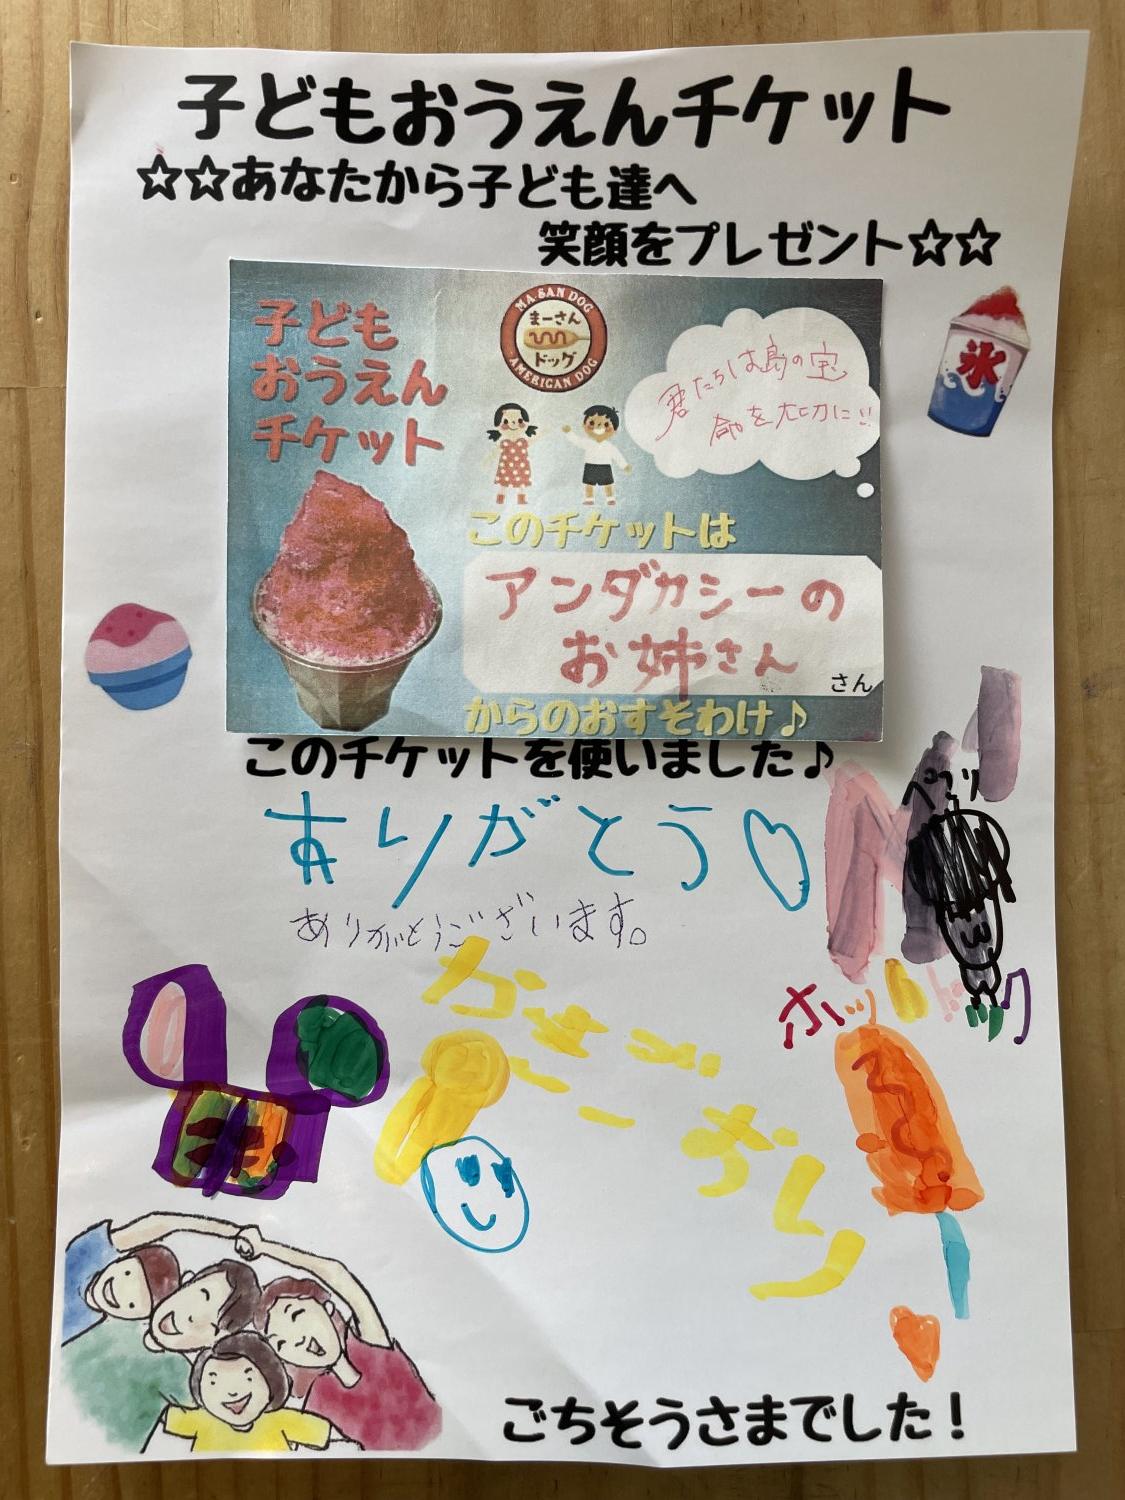 子どもおうえんチケット
☆☆あなたから子ども達へ
笑顔をプレゼント☆☆
子ども
おうえん
チケット
MA.SAN DOG
まーさん
ドッグ
AMERICAN DOG
君たちは島の宝
命を大切に!!
氷
このチケットは
アンダカシーの
お姉さん
さん
からのおすそわけ♪
このチケットを使いました♪
ありがとう♡
ありがとうございます。
ごちそうさまでした!